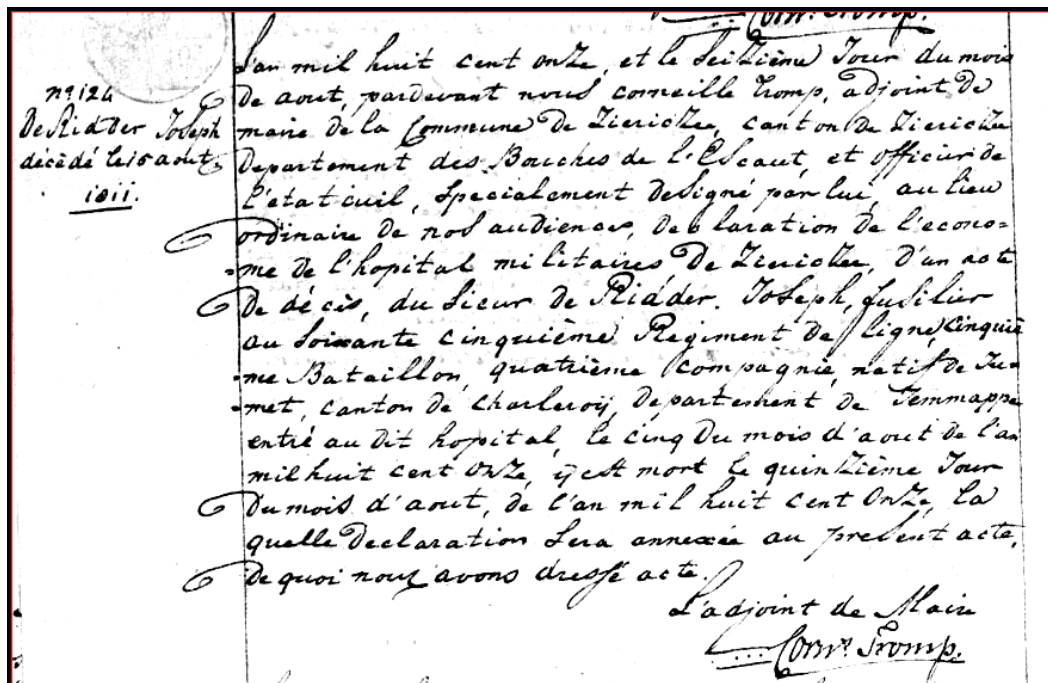 Corn.s Tromp.
n.o 124
De Ridder Joseph
décédé le 15 aout
1811.
L'an mil huit cent onze, et le Seizième Jour du mois
de aout, pardevant nous corneille Tromp, adjoint de
maire de la Commune de Zierickzee, canton de Zierickzee
Departement des Bouches de l'Escaut, et officier de
l'état civil, Specialement designé par lui, au lieu
ordinaire de nos audiences, declaration de l'econo=
=me de l'hopital militaires de Zierickzee, d'un acte
de décès, du Sieur de Ridder. Joseph, fusilier
au Soixante cinquième Regiment de ligne, cinquiè
=me Bataillon, quatrième compagnie, natif de Ju=
=met, canton de Charleroij, departement de Jemmappe
entré au dit hopital, le cinq du mois d'aout de l'an
mil huit cent onze, ij est mort le quinzième Jour
du mois d'aout, de l'an mil huit cent onze, la
quelle Declaration Sera annexée au present acte,
de quoi nous avons dressé acte.
L'adjoint de Maire
Corn.s Tromp.